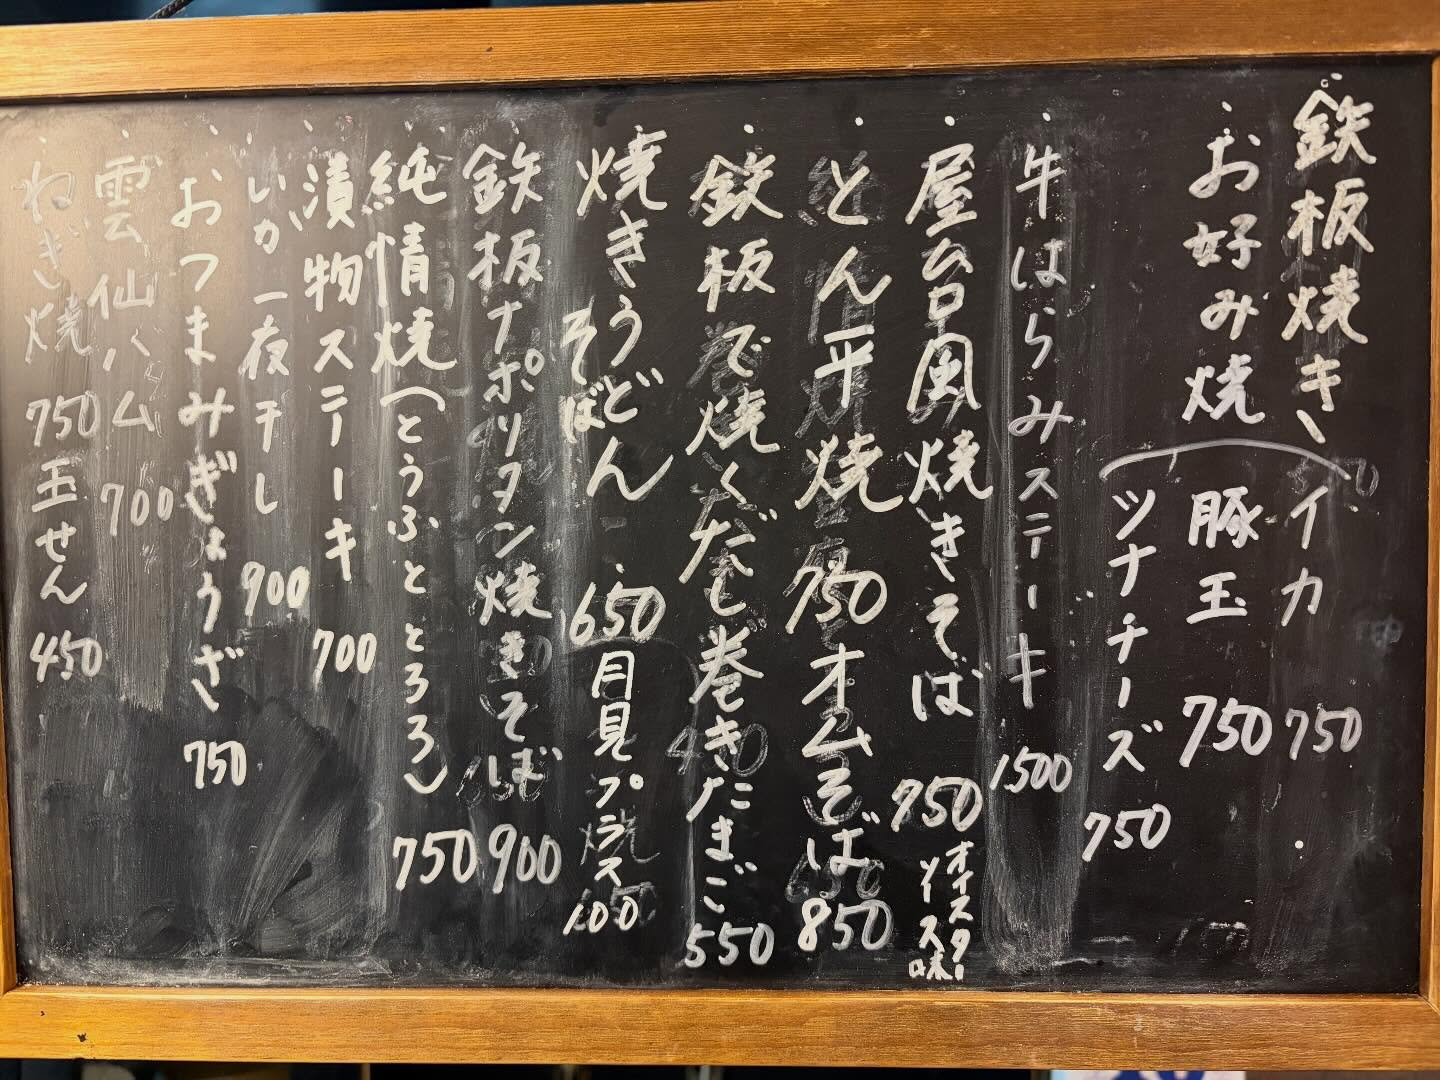 鉄板焼き
お好み焼
イカ 750
豚玉 750
ツナチーズ 750
牛はらみステーキ 1500
屋台風焼きそば 750
オイスターソース味
とん平焼 750
オムそば 850
鉄板で焼くだし巻きたまご 550
焼きうどん 650
そば
月見プラス 100
鉄板ナポリタン焼きそば 900
純情焼(とうふととろろ) 750
漬物ステーキ 700
いか一夜干し 900
おつまみぎょうざ 750
雲仙ハム 700
ねぎ焼 750
玉せん 450